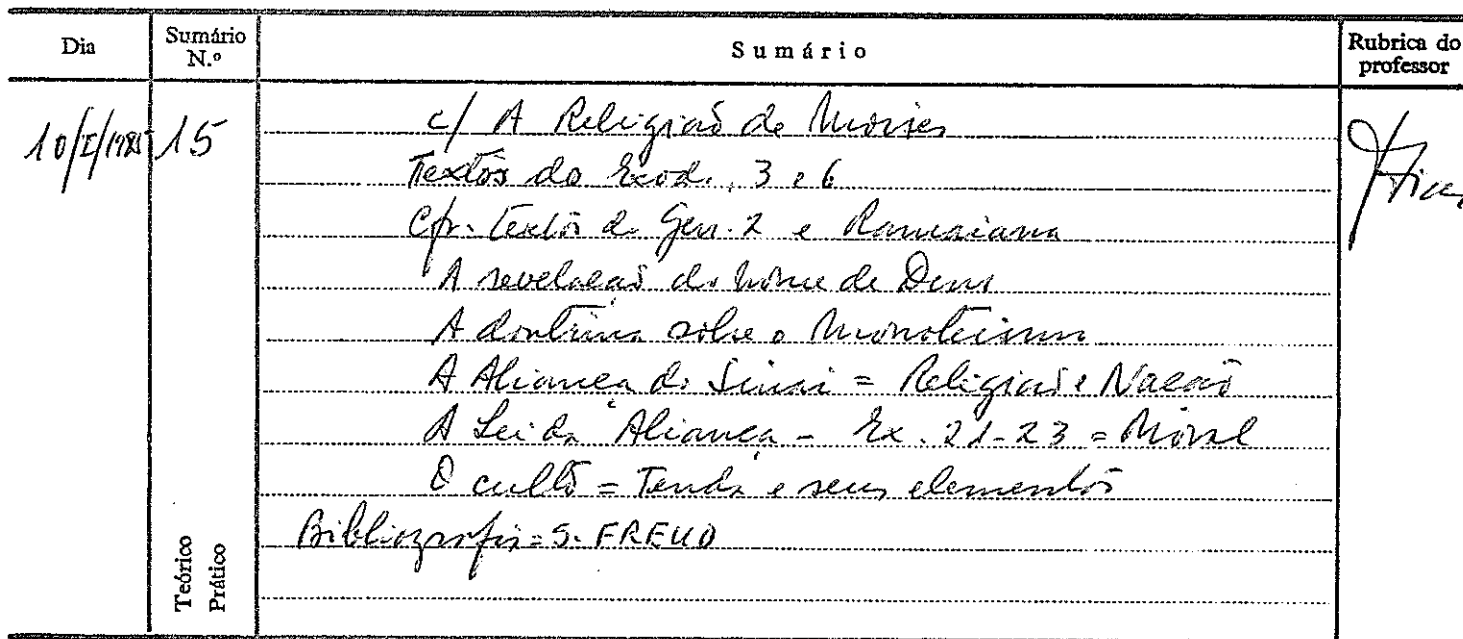 Dia
Sumário N.º
Sumário
Rubrica do professor
10/I/1985
15
c/ A Religião de Moises
Textos do Exod., 3 e 6
Cfr. textos de Gen. 2 e
A revelação do nome de Deus
A doutrina sobre o Monoteismo
A Aliança do Sinai = Religião e Nação
A Lei da Aliança - Ex. 21-23 = Moral
O culto = Tenda e seus elementos
Bibliografia = S. FREUD
Teórico
Prático